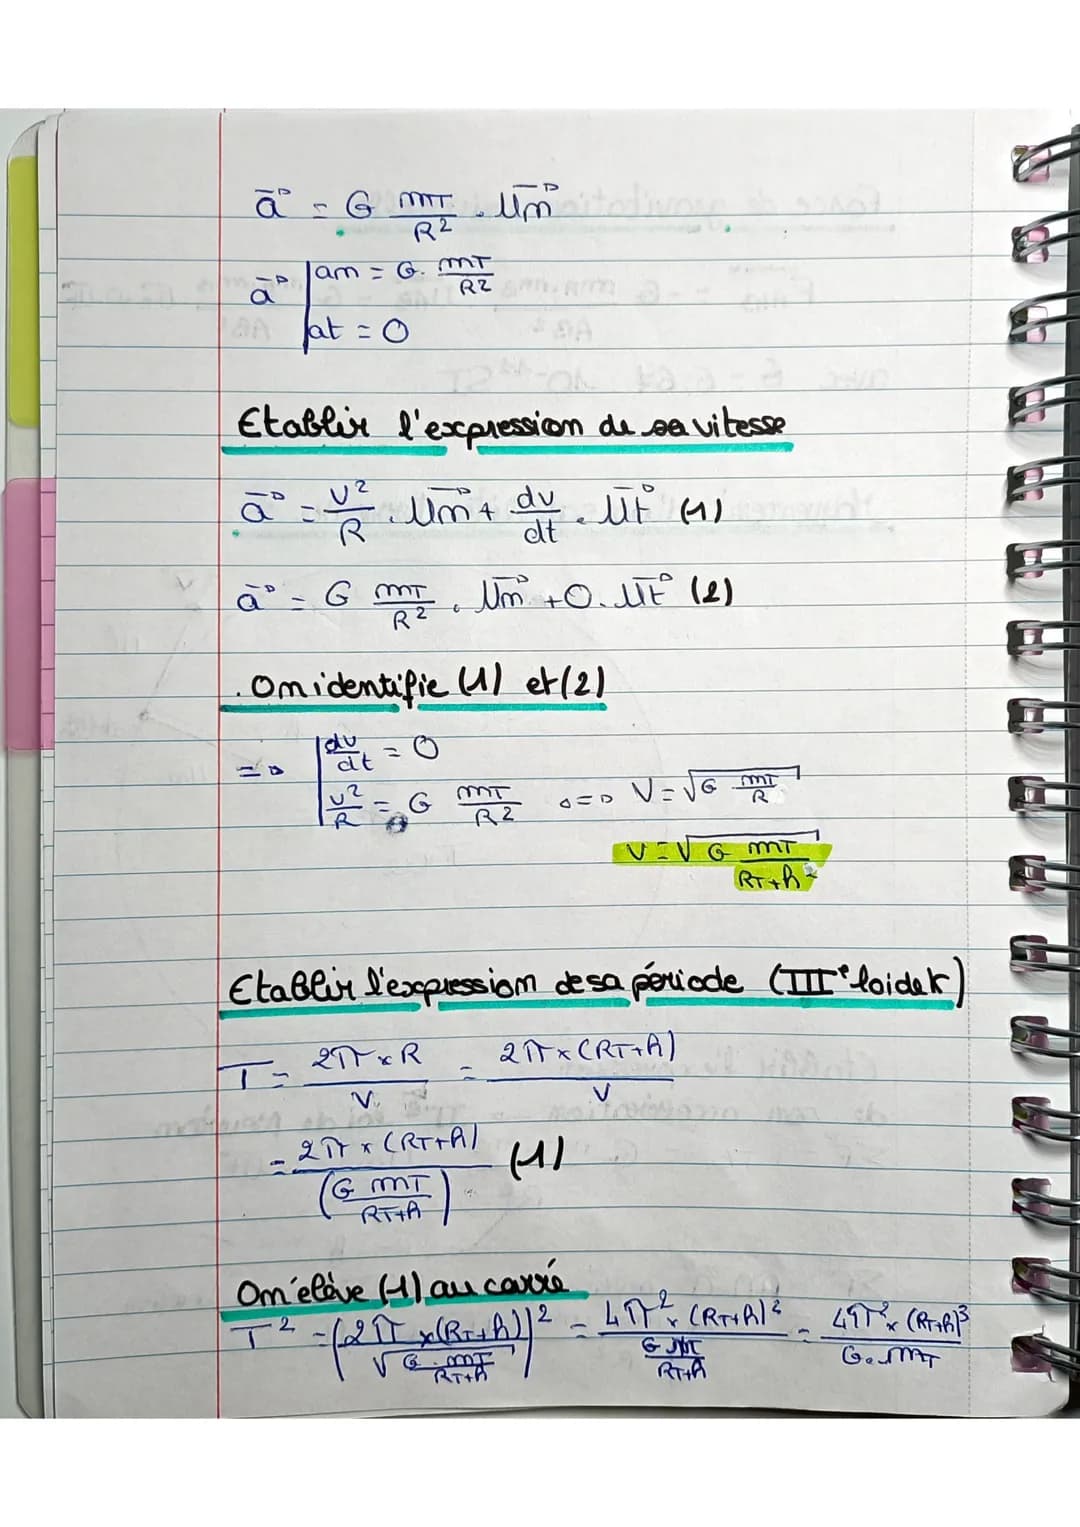 a⃗ = G mT/R² . Un⃗
a⃗ | an = G. mT/R²
| at = 0
Etablir l'expression de sa vitesse
a⃗ = V²/R . Un⃗ + dv/dt . Ut⃗ (1)
a⃗ = G mT/R² . Un⃗ + 0. Ut⃗ (2)
. On identifie (1) et (2)
=> | dv/dt = 0
| v²/R = G mT/R² <=> V = √(G mT/R)
V = √(G mT/(RT+h))
Etablir l'expression de sa période (III° loi de k)
T = 2π x R/V = 2π x (RT+h)/V
= 2π x (RT+h)/(G mT/(RT+h)) (1)
On élève (1) au carré
T² = (2π x (RT+h)/√(G . mT/(RT+h)))² = 4π² x (RT+h)²/(G mT/(RT+h)) = 4π² x (RT+h)³/(G . mT)